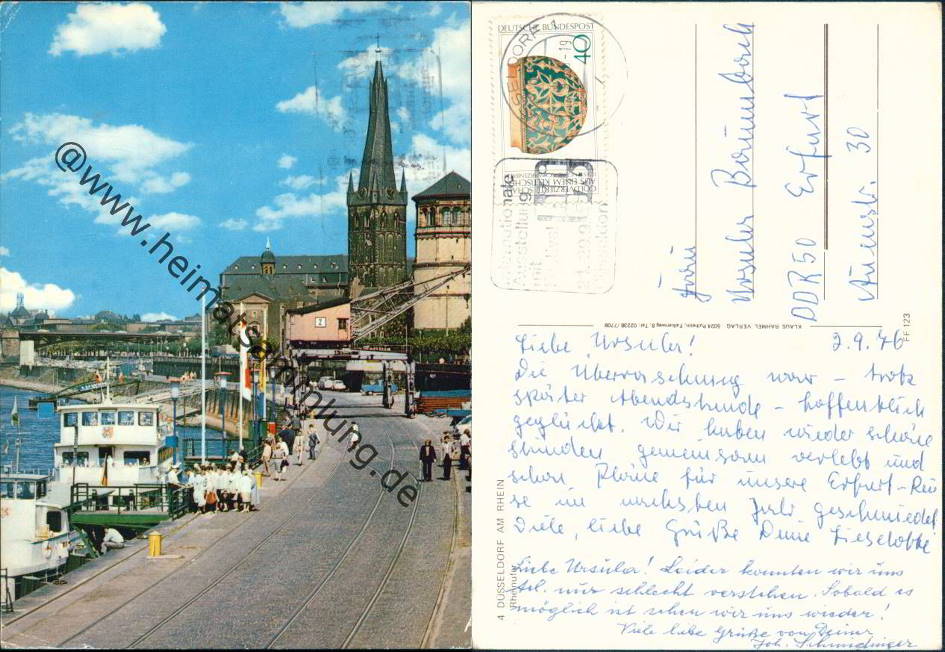 @www.heimatsammlung.de
2
DEUTSCHE BUNDESPOST
40
GOLDVERZIERTE
DÜSSELDORF 1
Frau
Ursula Baumbach
DDR 50 Erfurt
str. 30
KLAUS RAHMEL VERLAG 5024 Pulheim,
FF 123
4 DÜSSELDORF AM RHEIN
Rheinufer
Liebe Ursula! 2.9.76
Die Überraschung war – trotz
später Abendstunde – hoffentlich
geglückt. Wir haben wieder schöne
Stunden gemeinsam verlebt und
schon Pläne für unsere Erfurt-Rei
se im nächsten Jahr geschmiedet.
Viele, liebe Grüße Deine Lieselotte
Liebe Ursula! Leider konnten wir uns
tel. nur schlecht verstehen. Sobald es
möglich ist sehen wir uns wieder!
Viele liebe Grüße von Deiner
Joh.